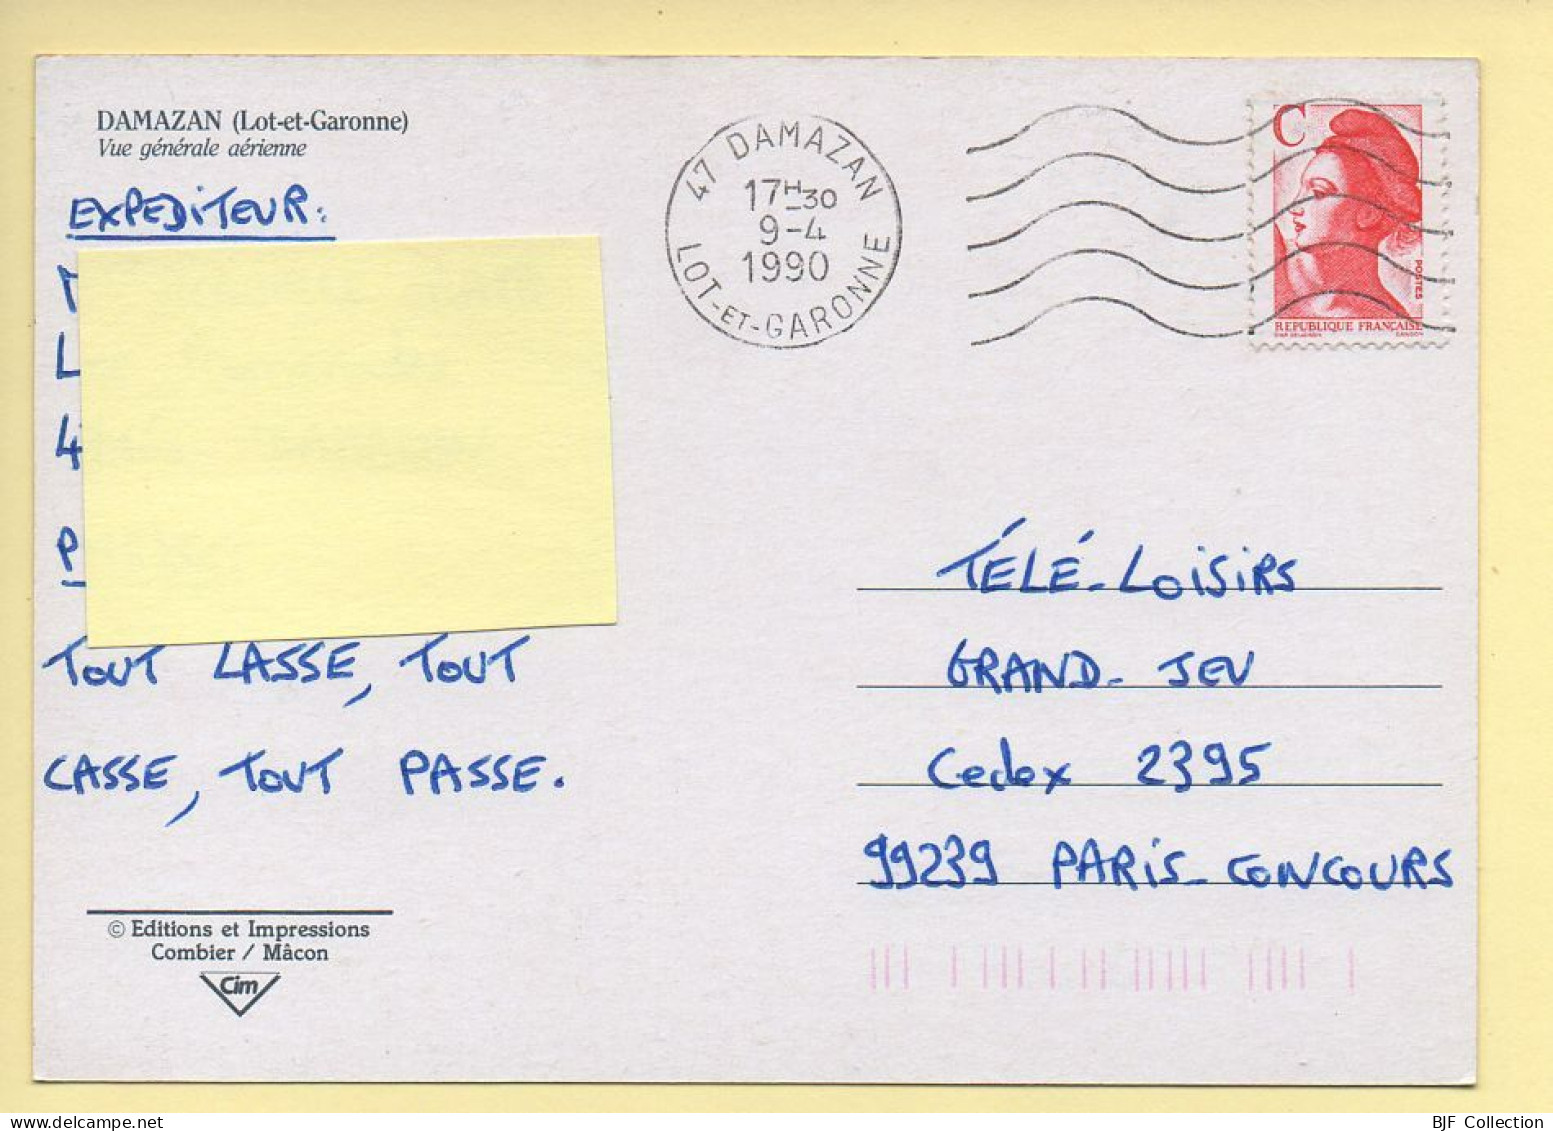 DAMAZAN (Lot-et-Garonne)
Vue générale aérienne
EXPEDITEUR:
47 DAMAZAN
17H30
9-4
1990
LOT-ET-GARONNE
C
POSTES
REPUBLIQUE FRANÇAISE
TÉLÉ-LOISIRS
GRAND-JEU
Cedex 2395
99239 PARIS-CONCOURS
TOUT LASSE, TOUT
CASSE, TOUT PASSE.
© Editions et Impressions
Combier / Mâcon
Cim
BJF Collection